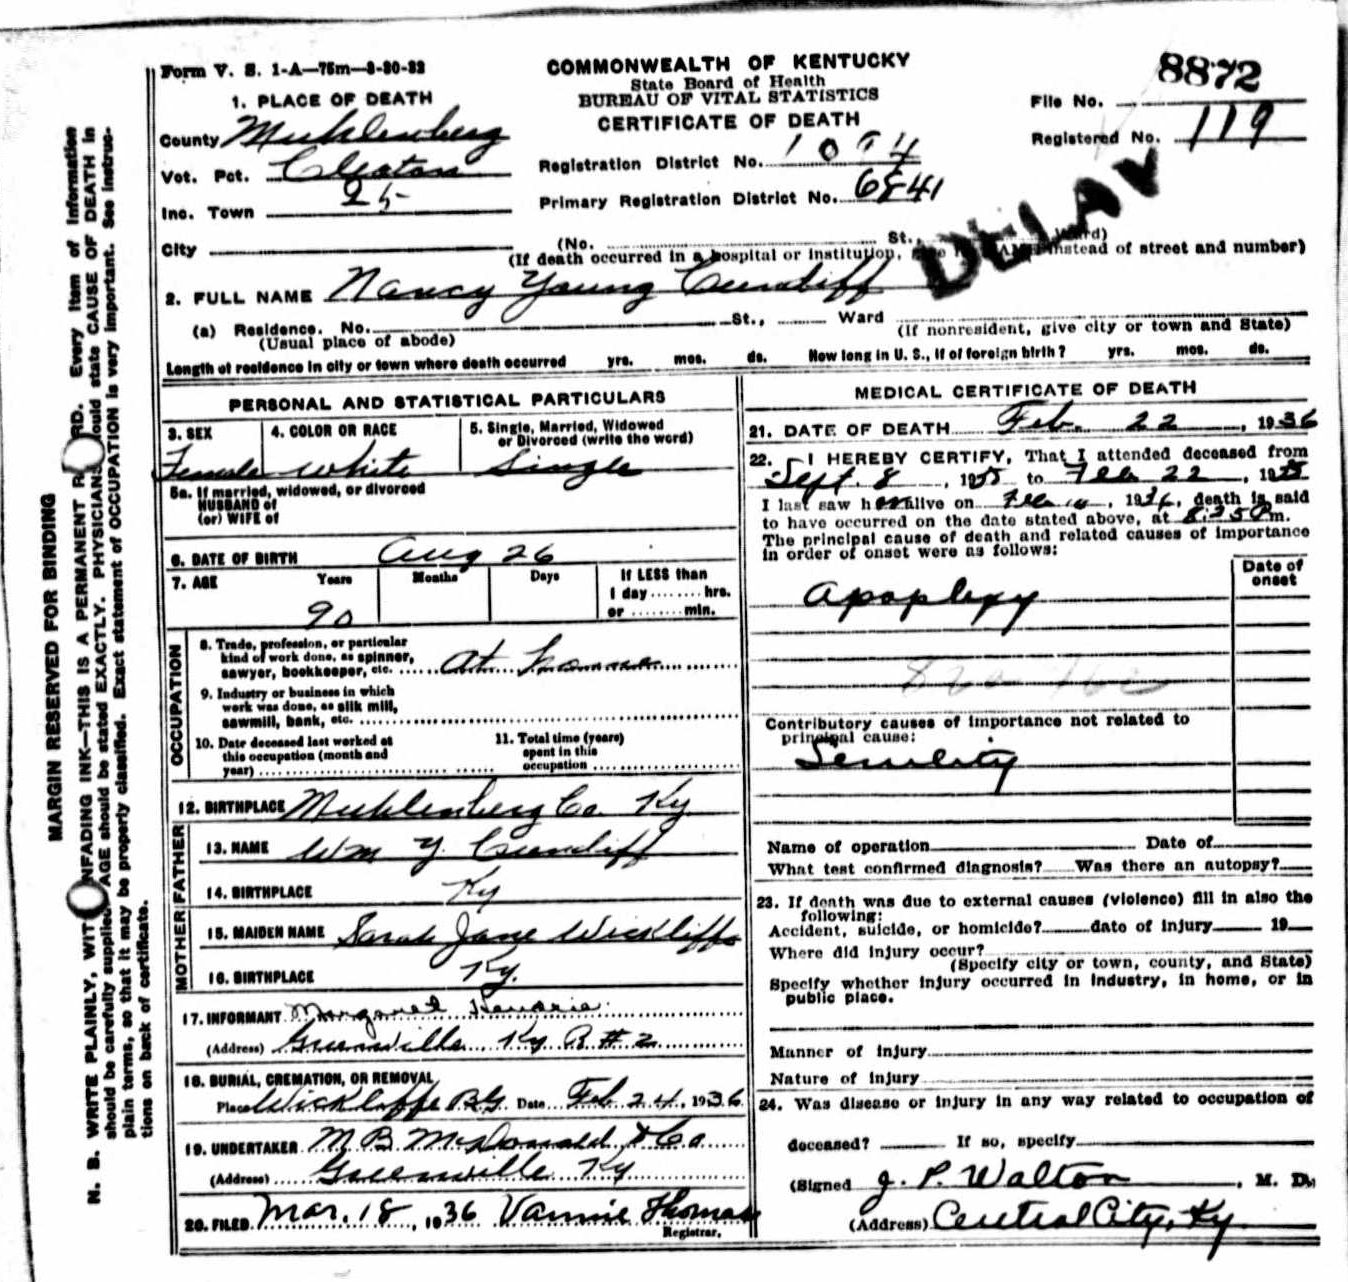 Form V. S. 1-A—75m—8-30-32
COMMONWEALTH OF KENTUCKY
State Board of Health
BUREAU OF VITAL STATISTICS
CERTIFICATE OF DEATH
8872
File No.
Registered No. 119
1. PLACE OF DEATH
County Muhlenberg
Vot. Pct. Cleaton
25
Inc. Town
City
Registration District No. 1094
Primary Registration District No. 6841
DELAY
(No. St., Ward)
(If death occurred in a hospital or institution, instead of street and number)
2. FULL NAME Nancy Young Cundiff
(a) Residence. No. St., Ward
(Usual place of abode)
(If nonresident, give city or town and State)
Length of residence in city or town where death occurred yrs. mos. ds. How long in U. S., if of foreign birth? yrs. mos. ds.
PERSONAL AND STATISTICAL PARTICULARS
3. SEX
Female
4. COLOR OR RACE
White
5. Single, Married, Widowed
or Divorced (write the word)
Single
5a. If married, widowed, or divorced
HUSBAND of
(or) WIFE of
6. DATE OF BIRTH Aug 26
7. AGE Years Months Days If LESS than
1 day........hrs.
or........min.
90
OCCUPATION
8. Trade, profession, or particular
kind of work done, as spinner,
sawyer, bookkeeper, etc. At home
9. Industry or business in which
work was done, as silk mill,
sawmill, bank, etc.
10. Date deceased last worked at
this occupation (month and
year)
11. Total time (years)
spent in this
occupation
12. BIRTHPLACE Muhlenberg Co. Ky.
FATHER
13. NAME Wm Y. Cundiff
14. BIRTHPLACE Ky
MOTHER
15. MAIDEN NAME Sarah Jane Wickliffe
16. BIRTHPLACE Ky.
17. INFORMANT Margaret
(Address) Greenville Ky R#2
18. BURIAL, CREMATION, OR REMOVAL
Place Wickliffe BG Date Feb 24, 1936
19. UNDERTAKER M B McDonald & Co
(Address) Greenville Ky
20. FILED Mar. 18, 1936 Vannie Thomas
Registrar.
MEDICAL CERTIFICATE OF DEATH
21. DATE OF DEATH Feb. 22, 1936
22. I HEREBY CERTIFY, That I attended deceased from
Sept. 8, 1935 to Feb 22, 19
I last saw her alive on Feb, 1936, death is said
to have occurred on the date stated above, at 8:25 P m.
The principal cause of death and related causes of importance
in order of onset were as follows:
Date of
onset
Apoplexy
Contributory causes of importance not related to
principal cause:
Senility
Name of operation Date of
What test confirmed diagnosis? Was there an autopsy?
23. If death was due to external causes (violence) fill in also the
following:
Accident, suicide, or homicide? date of injury 19
Where did injury occur?
(Specify city or town, county, and State)
Specify whether injury occurred in industry, in home, or in
public place.
Manner of injury
Nature of injury
24. Was disease or injury in any way related to occupation of
deceased? If so, specify
(Signed J. P. Walton, M. D.
(Address) Central City, Ky
MARGIN RESERVED FOR BINDING
N. B. WRITE PLAINLY, WITH UNFADING INK—THIS IS A PERMANENT RECORD. Every item of information
should be carefully supplied. AGE should be stated EXACTLY. PHYSICIANS should state CAUSE OF DEATH in
plain terms, so that it may be properly classified. Exact statement of OCCUPATION is very important. See instruc-
tions on back of certificate.